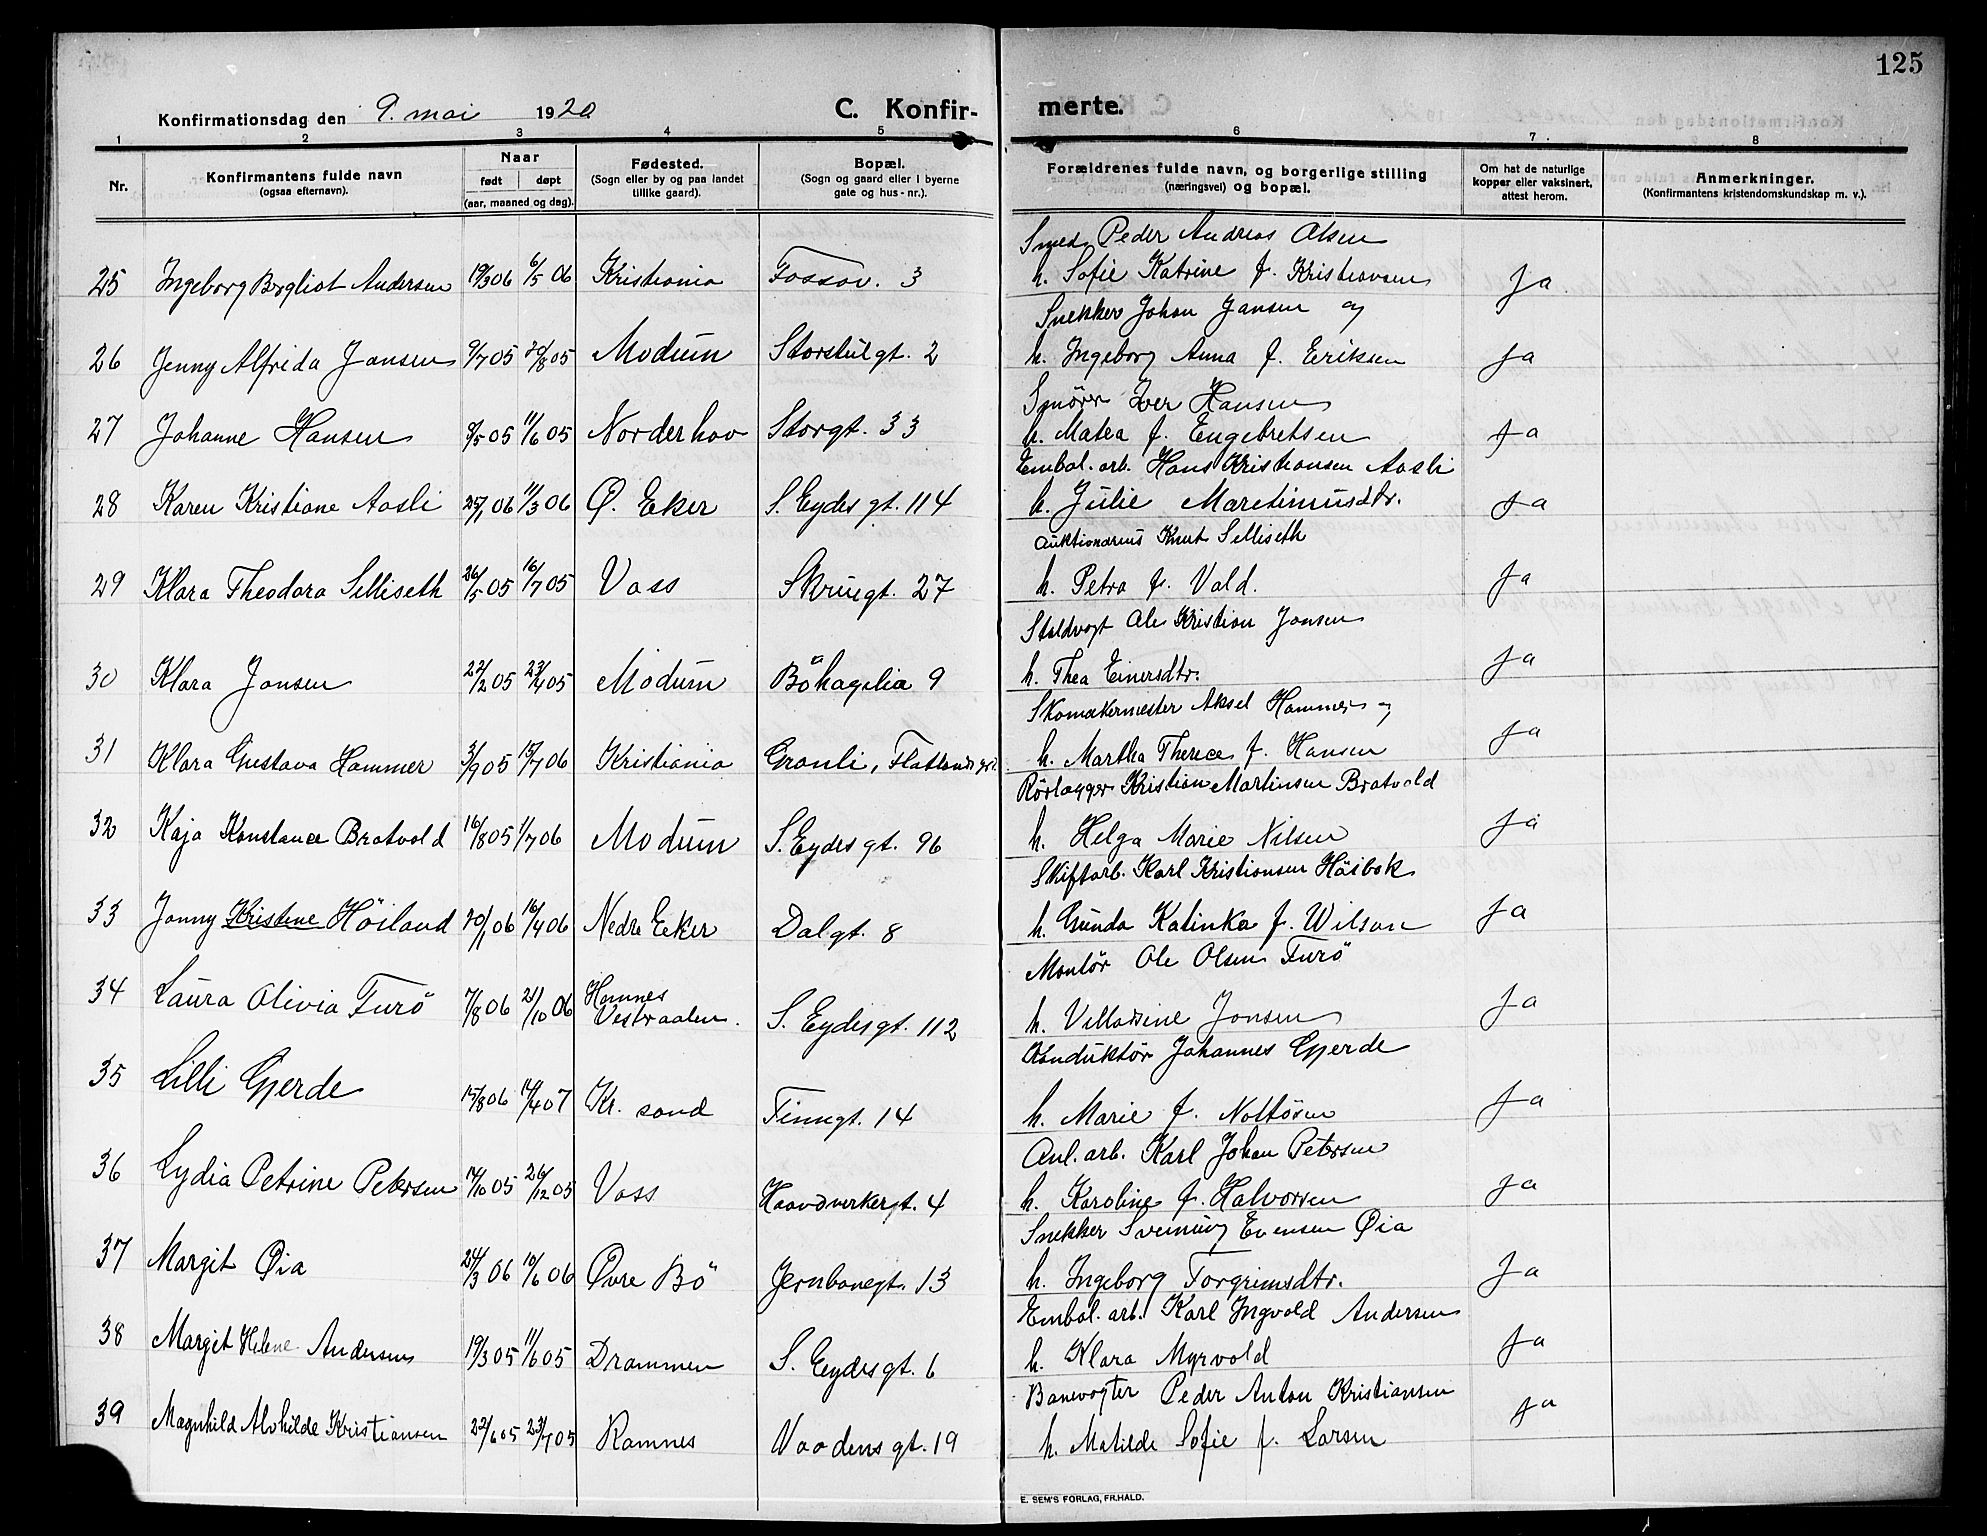 125
Konfirmationsdag den 9. mai 1920 C. Konfir- merte.
1 2 3 4 5 6 7 8
Nr.
Konfirmantens fulde navn
(ogsaa efternavn).
Naar
født døpt
(aar, maaned og dag).
Fødested.
(Sogn eller by og paa landet
tillike gaard).
Bopæl.
(Sogn og gaard eller i byerne
gate og hus-nr.).
Forældrenes fulde navn, og borgerlige stilling
(næringsvei) og bopæl.
Om hat de naturlige
kopper eller vaksinert,
attest herom.
Anmerkninger.
(Konfirmantens kristendomskundskap m. v.).
Smed Peder Andreas Olsen
25 Ingeborg Bergliot Andersen 19/3 06 6/5 06 Kristiania Fossov. 3 h. Sofie Katrine f. Kristiansen Ja
Snekker Johan Jansen og
26 Jenny Alfrida Jansen 9/7 05 20/8 05 Modum Storstulgt. 2 h. Ingeborg Anna f. Eriksen Ja
Smörer Iver Hansen
27 Johanne Hansen 8/5 05 11/6 05 Norderhov Storgt. 33 h. Matea f. Engebretsen Ja
Embal. arb. Hans Kristiansen Aasli
28 Karen Kristiane Aasli 25/1 06 11/3 06 Ø. Eker S. Eydes gt. 114 h. Julie Maretinusdtr. Ja
Auktionarius Knut Selliseth
29 Klara Theodora Selliseth 26/5 05 16/7 05 Voss Skruegt. 27 h. Petra f. Vold. Ja
Staldvogt Ole Kristian Jansen
30 Klara Jansen 22/2 05 23/4 05 Modum Böhagilia 9 h. Thea Einersdtr. Ja
Skomakermester Aksel Hammer og
31 Klara Gustava Hammer 3/9 05 15/7 06 Kristiania Grönli, Flatlands h. Martha Therece f. Hansen Ja
Rörlægger Kristian Martinsen Bratvold
32 Kaja Konstance Bratvold 16/8 05 1/7 06 Modum S. Eydes gt. 96 h. Helga Marie Nilsen Ja
Skiftarb. Karl Kristiansen Höibak
33 Jonny Kristine Höiland 20/1 06 16/4 06 Nedre Eker Dalgt. 8 h. Gunda Katinka f. Wilson Ja
Montör Ole Olsen Turö
34 Laura Olivia Turö 7/8 06 21/10 06 Hamnes
Vestraalen. S. Eydes gt. 112 h. Villadsine Jonsen Ja
Konduktör Johannes Gjerde
35 Lilli Gjerde 15/8 06 14/4 07 Kr. sand Tinngt. 14 h. Marie f. Noltösen Ja
Anl. arb. Karl Johan Petersen
36 Lydia Petrine Petersen 14/10 05 26/12 05 Voss Haandverkergt. 4 h. Karoline f. Halvorsen Ja
Snekker Sveinung Evensen Øia
37 Margit Øia 24/3 06 10/6 06 Øvre Bö Jernbanegt. 13 h. Ingeborg Torgrimsdtr. Ja
Embal. arb. Karl Ingvald Andersen
38 Margit Helene Andersen 19/3 05 11/6 05 Drammen S. Eydes gt. 6 h. Klara Myrvold Ja
Banevogter Peder Anton Kristiansen
39 Magnhild Alvhilde Kristiansen 22/6 05 23/7 05 Ramnes Vaadens gt. 19 h. Matilde Sofie f. Larsen Ja
E. SEM'S FORLAG, FR.HALD.